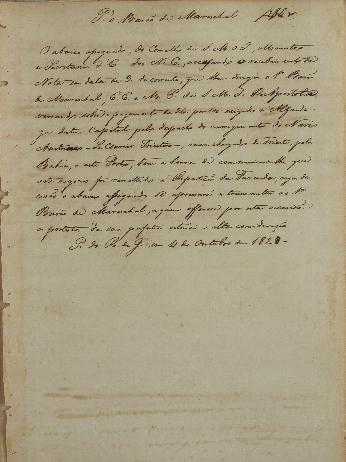 Pª o Barão de Mareschal
O abaixo assignado, do Conselho de S. M. o I., Ministro
e Secretario d'E. dos N. E., accusando o recebimento da
Nota na data de 3 do corrente, que lhe dirigio o Sr. Barão
de Mareschal, E. E. e M. P. de S. M. I. e R. Apostolica
versando sobre o pagamento de direitos exigido n'Alfande-
ga desta Capital pelo despacho do carregamento do Navio
Austriaco - Le Courrier Triestin -, vindo de Trieste, pela
Bahia, a este Porto, tem a honra de communicar-lhe que
este negocio foi remettido á Repartição da Fazenda, cuja de-
cisão o abaixo assignado se apressará a transmittir ao Sr.
Barão de Mareschal, a quem offerece por esta occasião
os protestos da sua perfeita estima e alta consideração
P. do R. de J. em 4 de Outubro de 1828 -